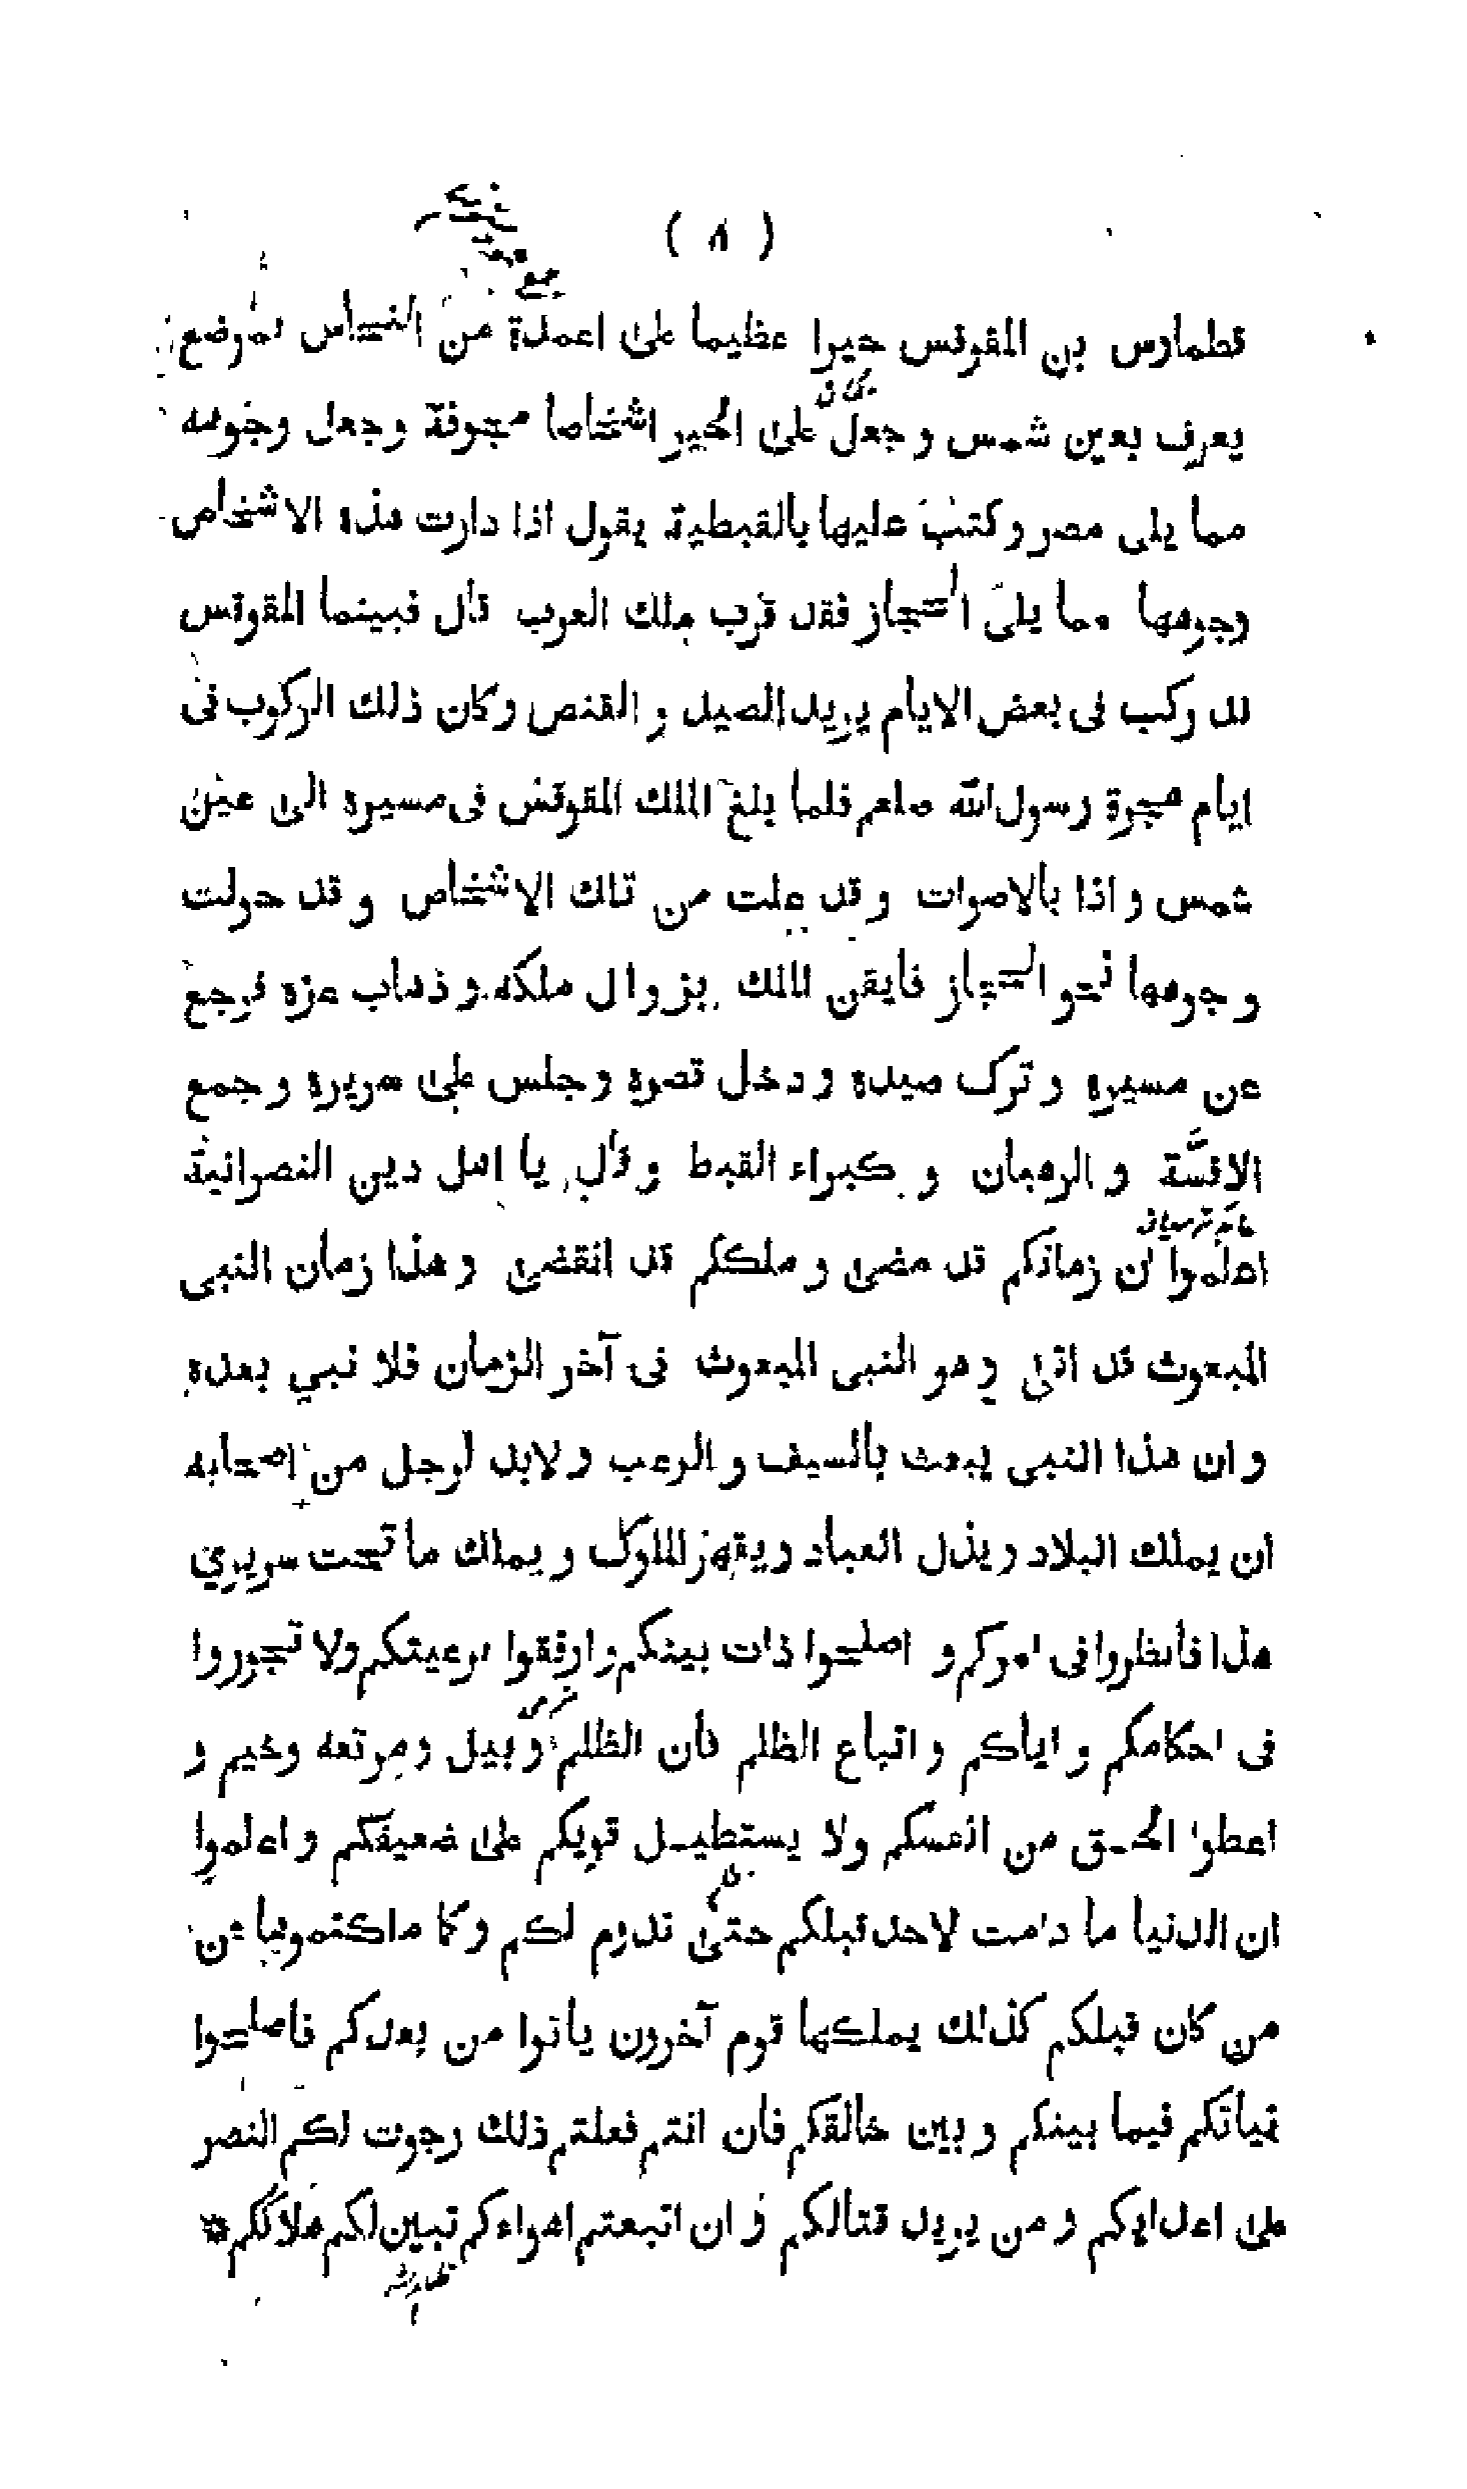 ( ٨ )
قطمارس بن المقوقس حيرا عظيما على اعمدة من النحاس بموضع
يعرف بعين شمس و جعل على الحير اشخاصا مجوفة و جعل وجوهه
مما يلى مصر و كتب عليها بالقبطية يقول اذا دارت هذه الاشخاص
وجوهها مما يلى الحجاز فقد قرب ملك العرب قال فبينما المقوقس
قد ركب فى بعض الايام يريد الصيد و القنص و كان ذلك الركوب فى
ايام هجرة رسول الله صلعم فلما بلغ الملك المقوقس فى مسيره الى عين
شمس و اذا بالاصوات و قد علت من تلك الاشخاص و قد حولت
وجوهها نحو الحجاز فايقن الملك بزوال ملكه و ذهاب عزه فرجع
عن مسيره و ترك صيده و دخل قصره و جلس على سريره و جمع
الاقسّة و الرهبان و كبراء القبط و قال يا اهل دين النصرانية
اعلموا ان زمانكم قد مضى و ملككم قد انقضى و هذا زمان النبى
المبعوث قد اتى و هو النبى المبعوث فى آخر الزمان فلا نبي بعده
و ان هذا النبى يبعث بالسيف و الرعب و لابد لرجل من اصحابه
ان يملك البلاد و يذل العباد و يقهر الملوك و يملك ما تحت سريري
هذا فانظروا فى امركم و اصلحوا ذات بينكم و ارفقوا برعيتكم ولا تجوروا
فى احكامكم و اياكم و اتباع الظلم فان الظلم وبيل و مرتعه وخيم و
اعطوا الحـق من انفسكم ولا يستطيـل قويكم على ضعيفكم و اعلموا
ان الدنيا ما دامت لاحد قبلكم حتى تدوم لكم و كما ملكتموها عن
من كان قبلكم كذلك يملكها قوم آخرون ياتوا من بعدكم فاصلحوا
نياتكم فيما بينكم و بين خالقكم فان انتم فعلتم ذلك رجوت لكم النصر
على اعدايكم و من يريد قتالكم و ان اتبعتم اهواءكم تبين لكم هلاككم *